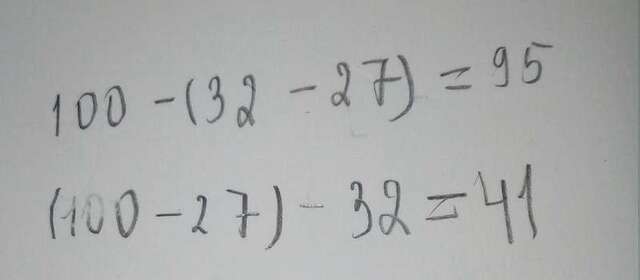 100 - (32 - 27) = 95
(100 - 27) - 32 = 41